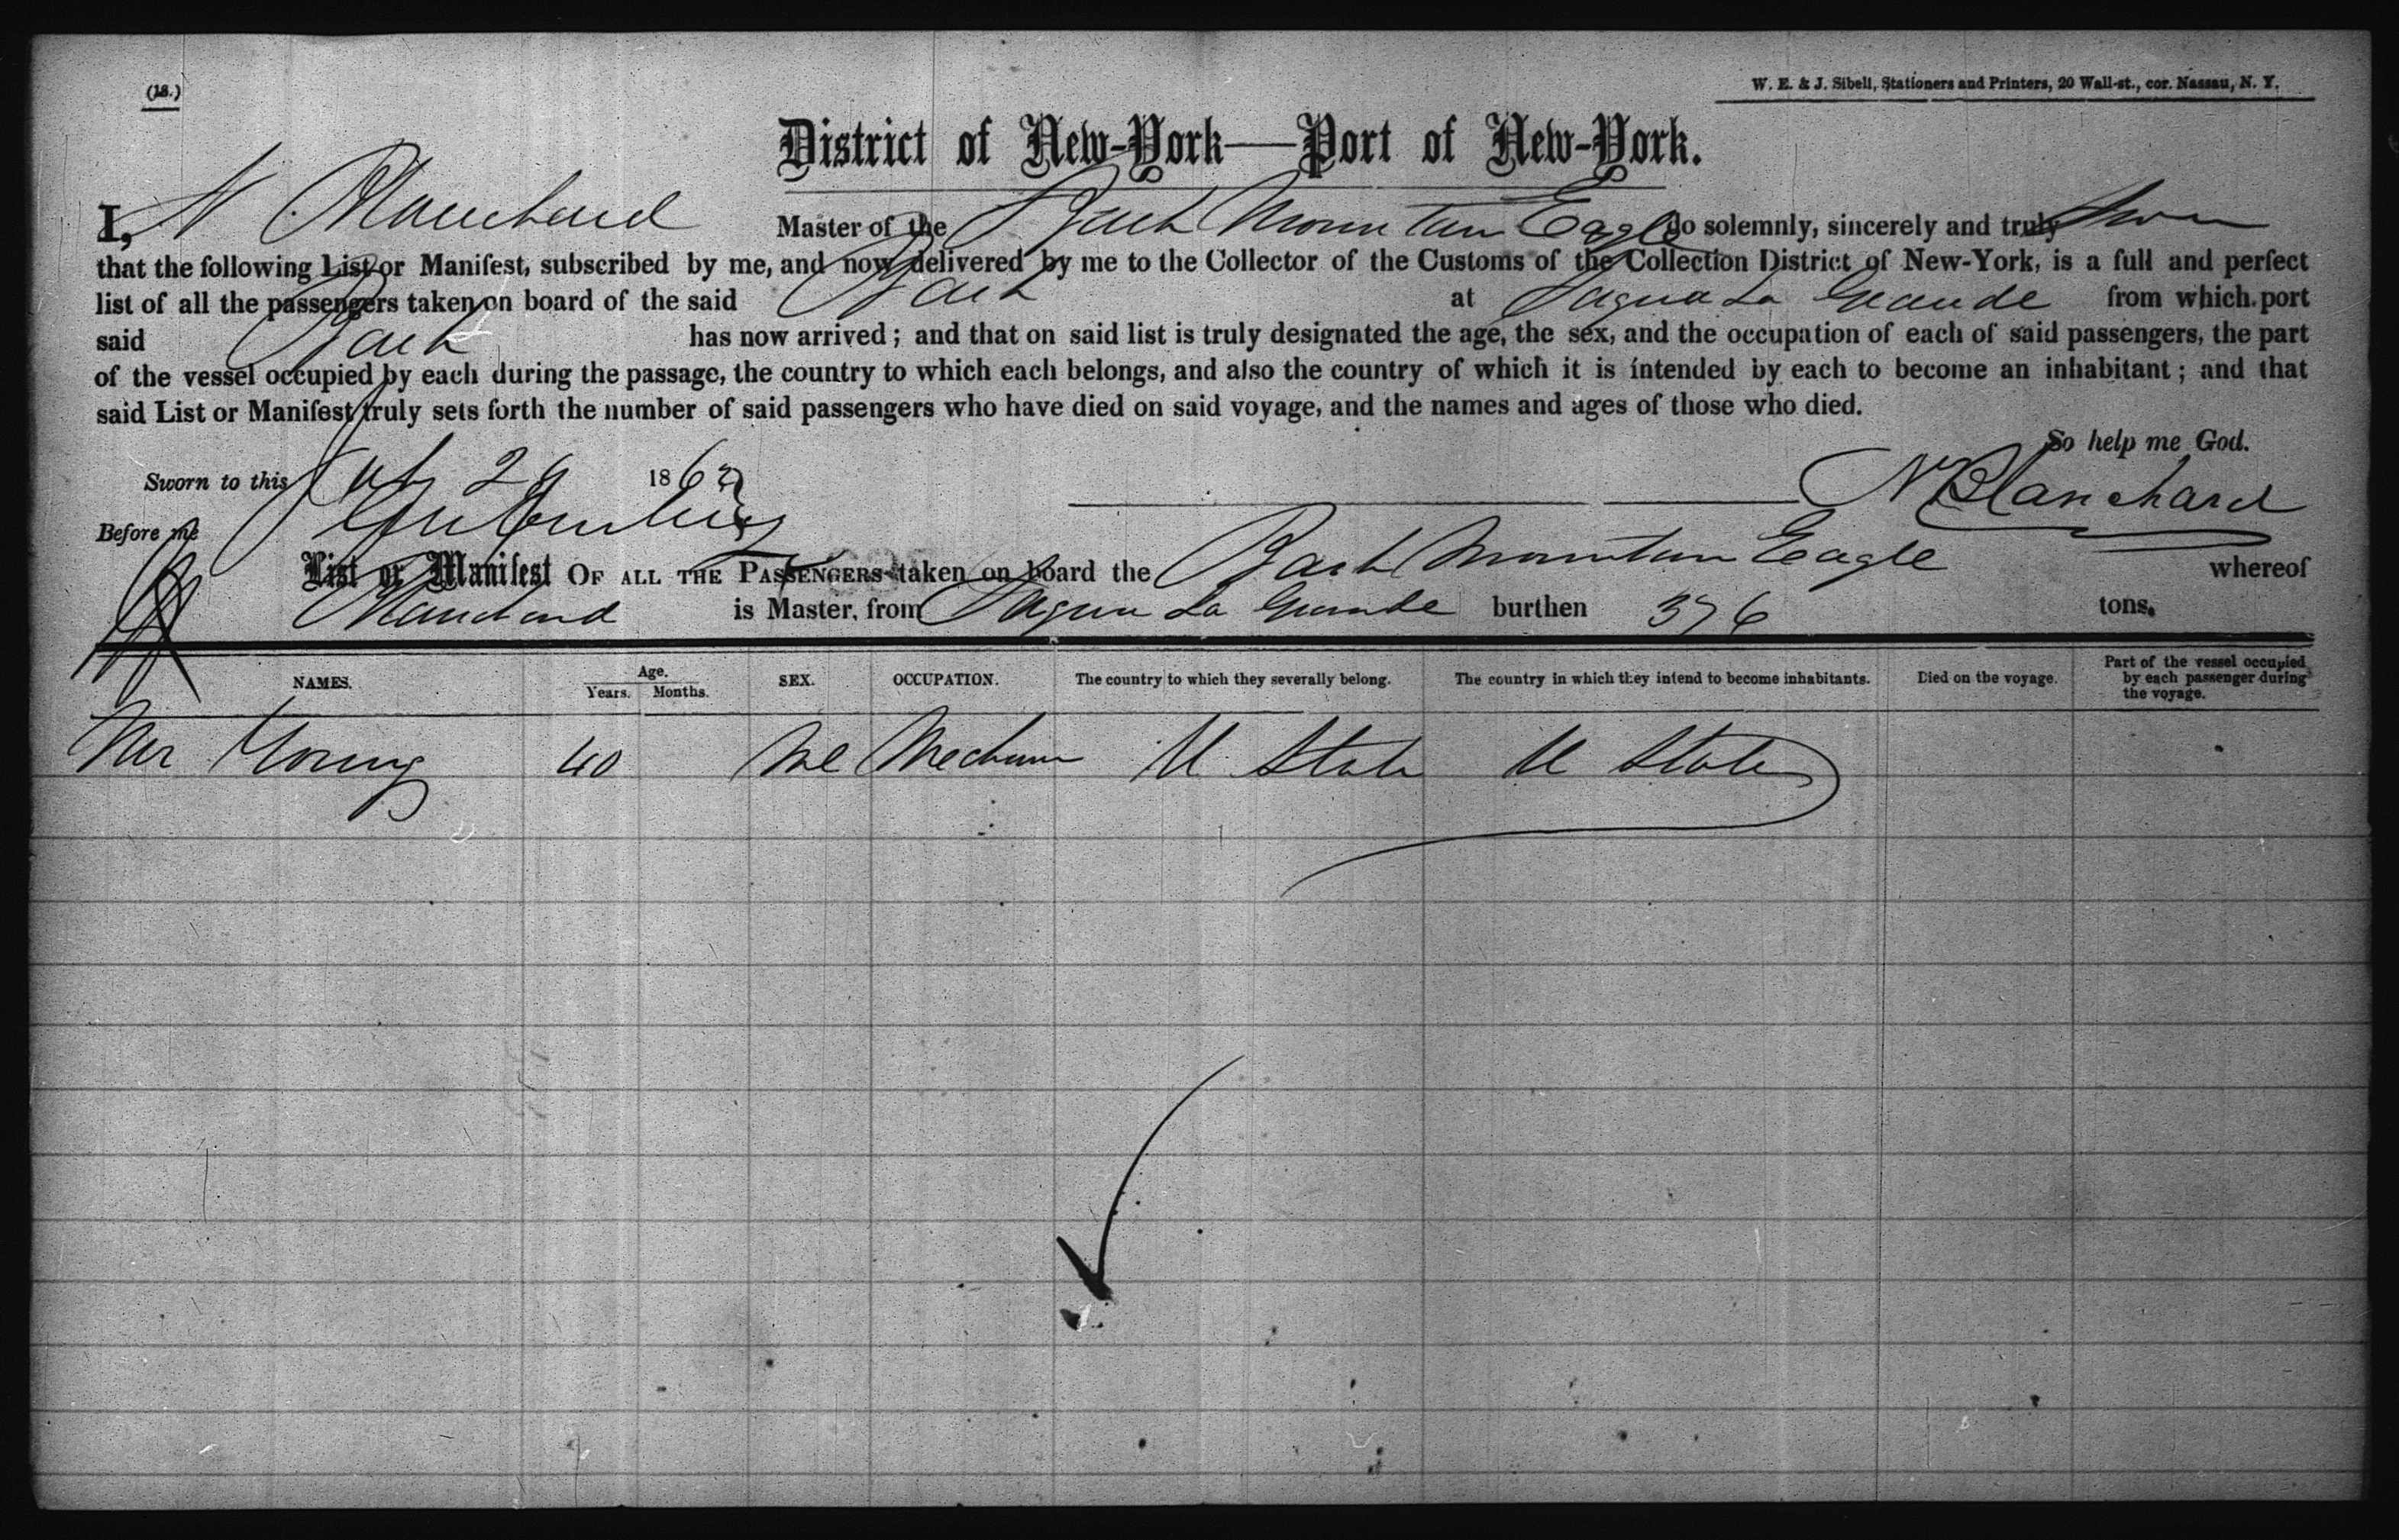 (18.)
W. E. & J. Sibell, Stationers and Printers, 20 Wall-st., cor. Nassau, N. Y.
District of New-York—Port of New-York.
I, N Blanchard Master of the Bark Mountain Eagle do solemnly, sincerely and truly swear
that the following List or Manifest, subscribed by me, and now delivered by me to the Collector of the Customs of the Collection District of New-York, is a full and perfect
list of all the passengers taken on board of the said Bark at Sagua La Grande from which port
said Bark has now arrived; and that on said list is truly designated the age, the sex, and the occupation of each of said passengers, the part
of the vessel occupied by each during the passage, the country to which each belongs, and also the country of which it is intended by each to become an inhabitant; and that
said List or Manifest truly sets forth the number of said passengers who have died on said voyage, and the names and ages of those who died.
So help me God.
Sworn to this 29 186
N Blanchard
Before me
List or Manifest OF ALL THE PASSENGERS taken on board the Bark Mountain Eagle whereof
Blanchard is Master, from Sagua La Grande burthen 376 tons.
NAMES. Age. Years. Months. SEX. OCCUPATION. The country to which they severally belong. The country in which they intend to become inhabitants. Died on the voyage. Part of the vessel occupied by each passenger during the voyage.
Mr Young 40 Ml Mechanic U States U States